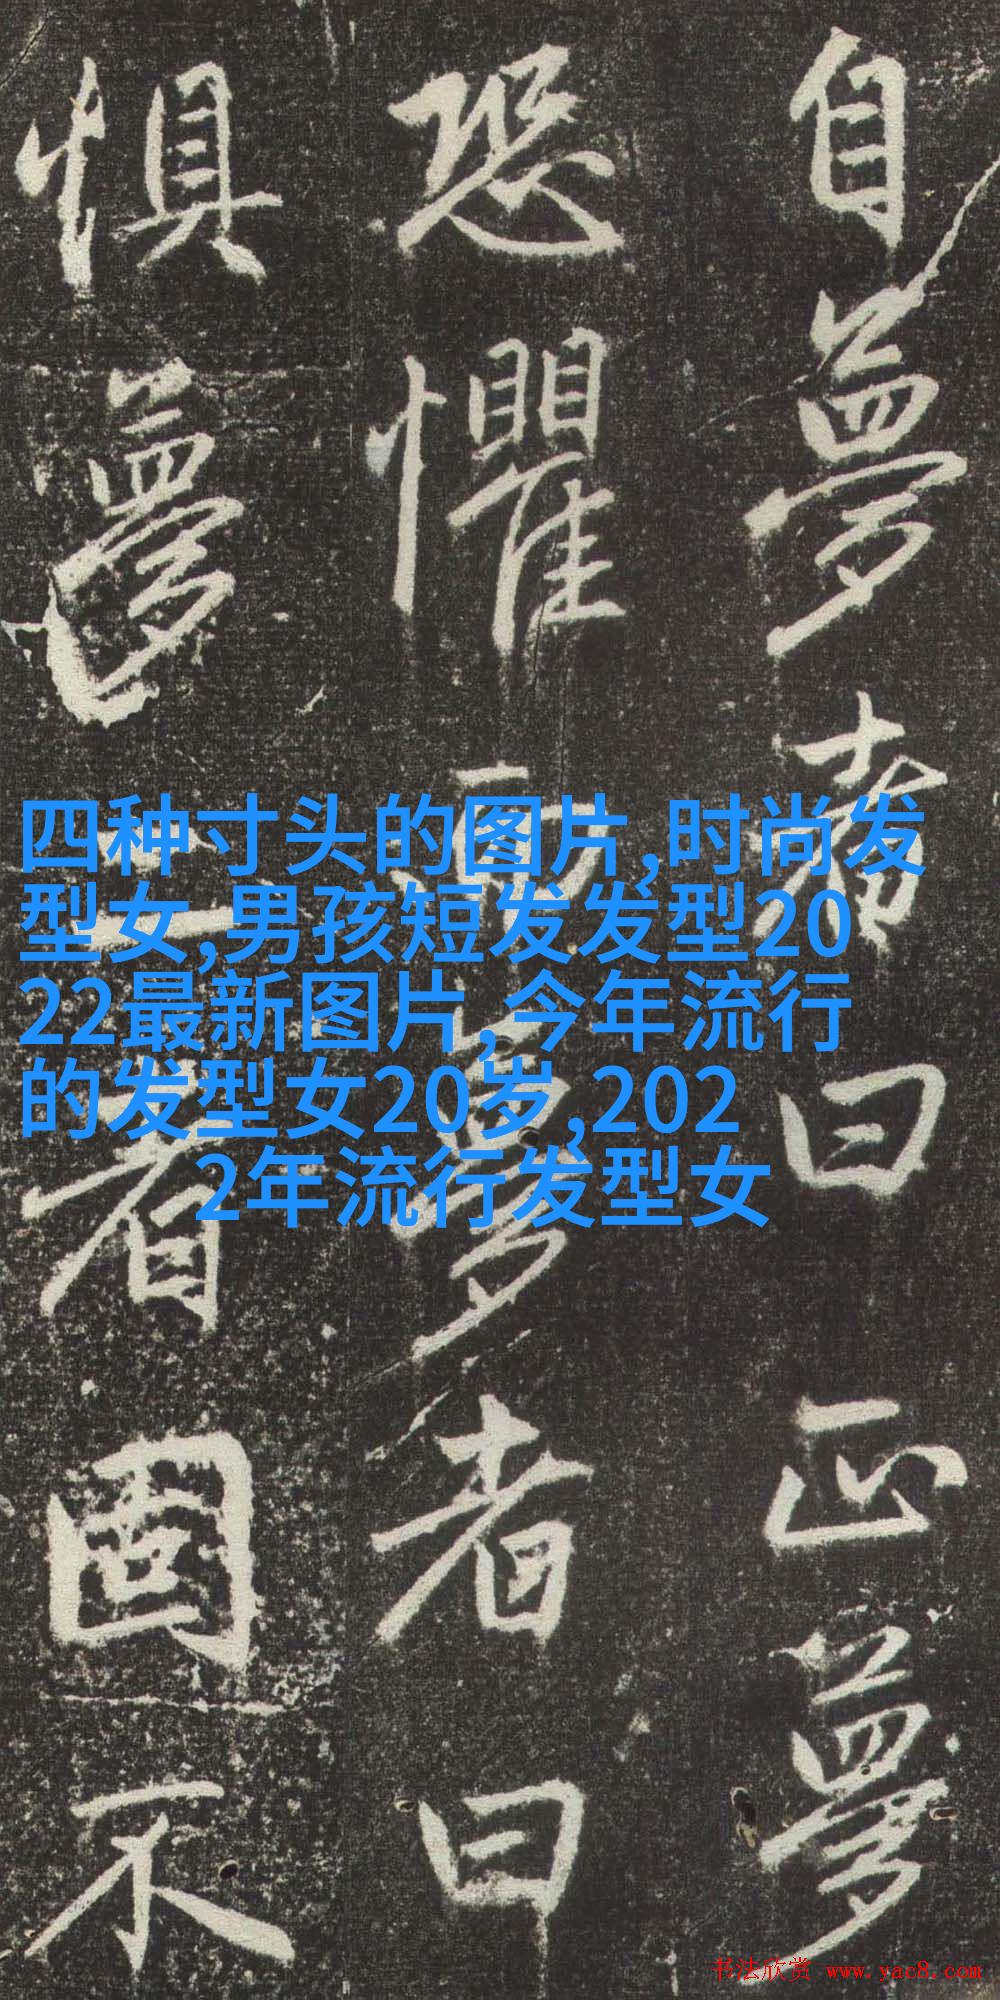 自夢者曰正夢
恐懼而夢者曰
惧夢者固不
四种寸头的图片,时尚发
型女,男孩短发发型20
22最新图片,今年流行
的发型女20岁,202
2年流行发型女
书法欣赏 www.yac8.com